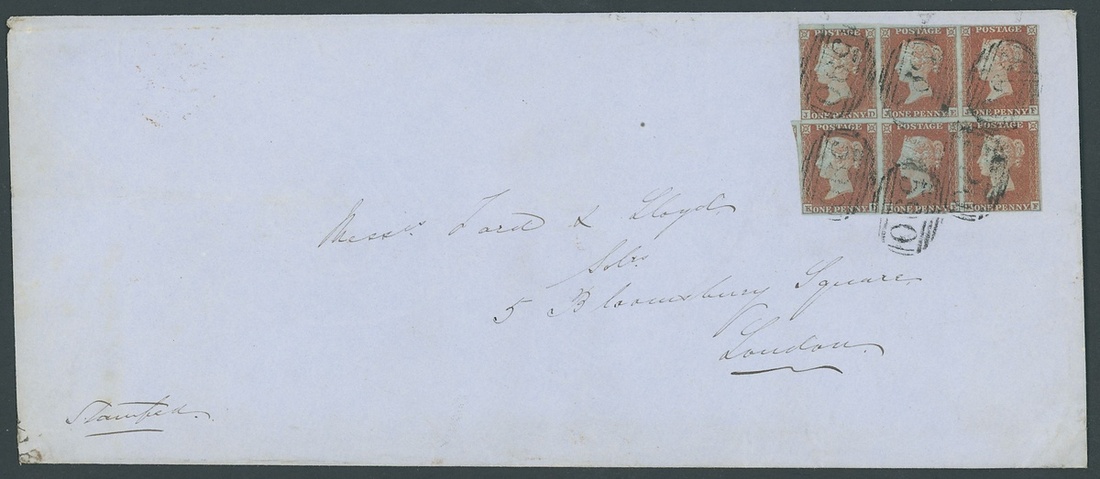 POSTAGE POSTAGE POSTAGE
ONE PENNY ONE PENNY ONE PENNY
POSTAGE POSTAGE POSTAGE
ONE PENNY ONE PENNY ONE PENNY
Messrs Ford & Lloyd
Solrs
5 Bloomsbury Square
London
Stamped